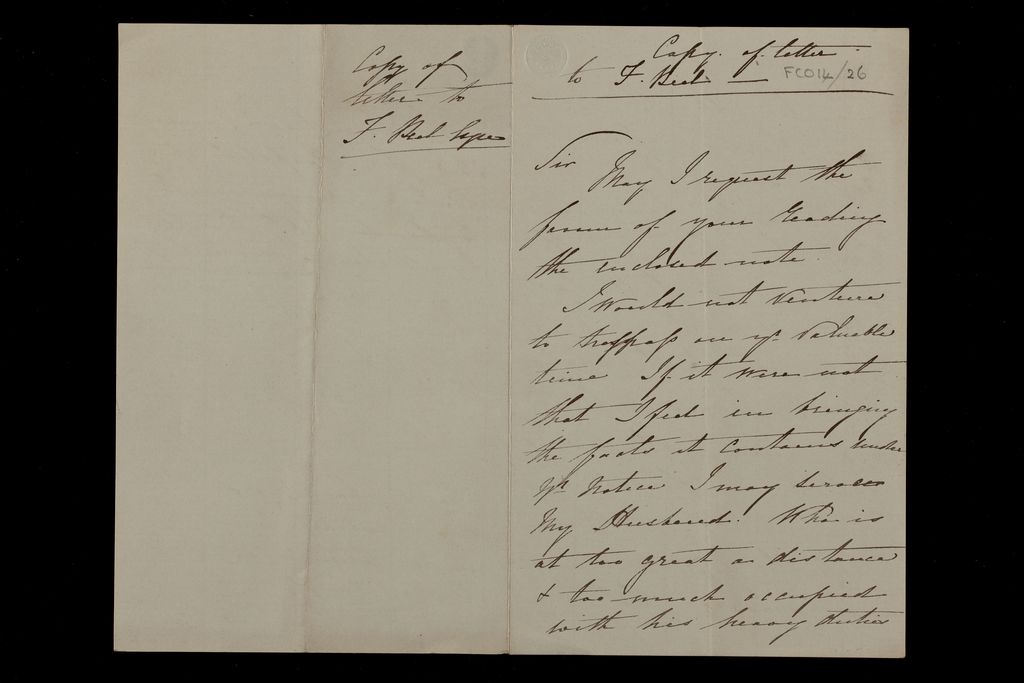 Copy of
letter to
F. Peel Esqre
Copy. of letter
to F. Peel —
FCO14/26
Sir May I request the
favour of your Reading
the enclosed note.
I Would not Venture
to trespass on yr. Valuable
time If it were not
that I feel in bringing
the facts it contains under
yr. Notice I may serve
My Husband. Who is
at too great a distance
& too much occupied
with his heavy duties